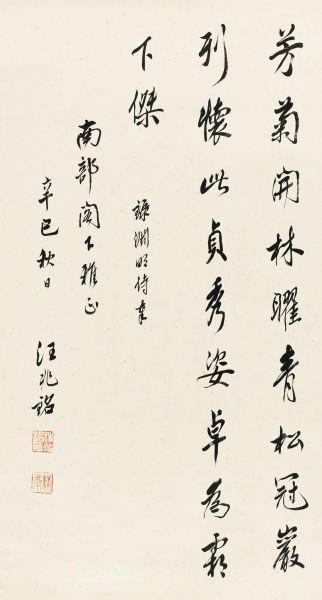 芳菊開林曜青松冠巖
列懷此貞秀姿卓為霜
下傑
淵明詩奉
南部閣下雅正
辛巳秋日
汪兆銘